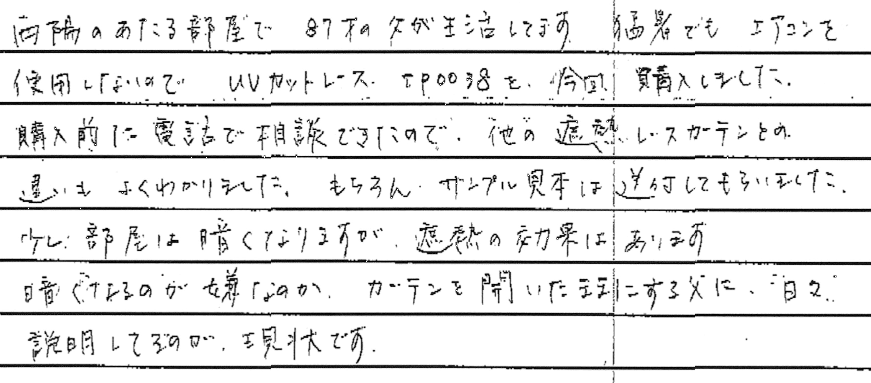 西陽のあたる部屋で 87才の父が生活してます 猛暑でも エアコンを
使用しないので UVカットレース. IP0038を、今回 購入しました.
購入前に電話で相談できたので、他の遮熱レースカーテンとの
違いも よくわかりました. もちろん. サンプル見本は送付してもらいました.
少し部屋は暗くなりますが、遮熱の効果はあります
暗くなるのが嫌なのか、カーテンを開いたままにする父に、日々
説明してるのが、現状です.